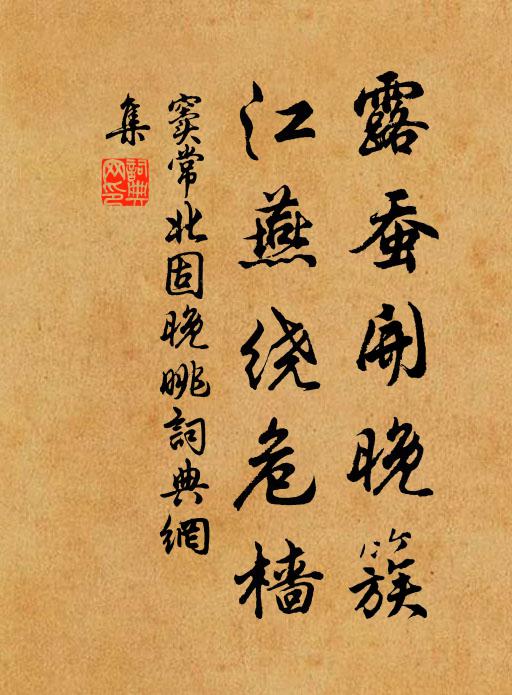 露蚕開晚簇
江燕绕危樯
窦常北固晚眺詞典網
集
詞典
网印